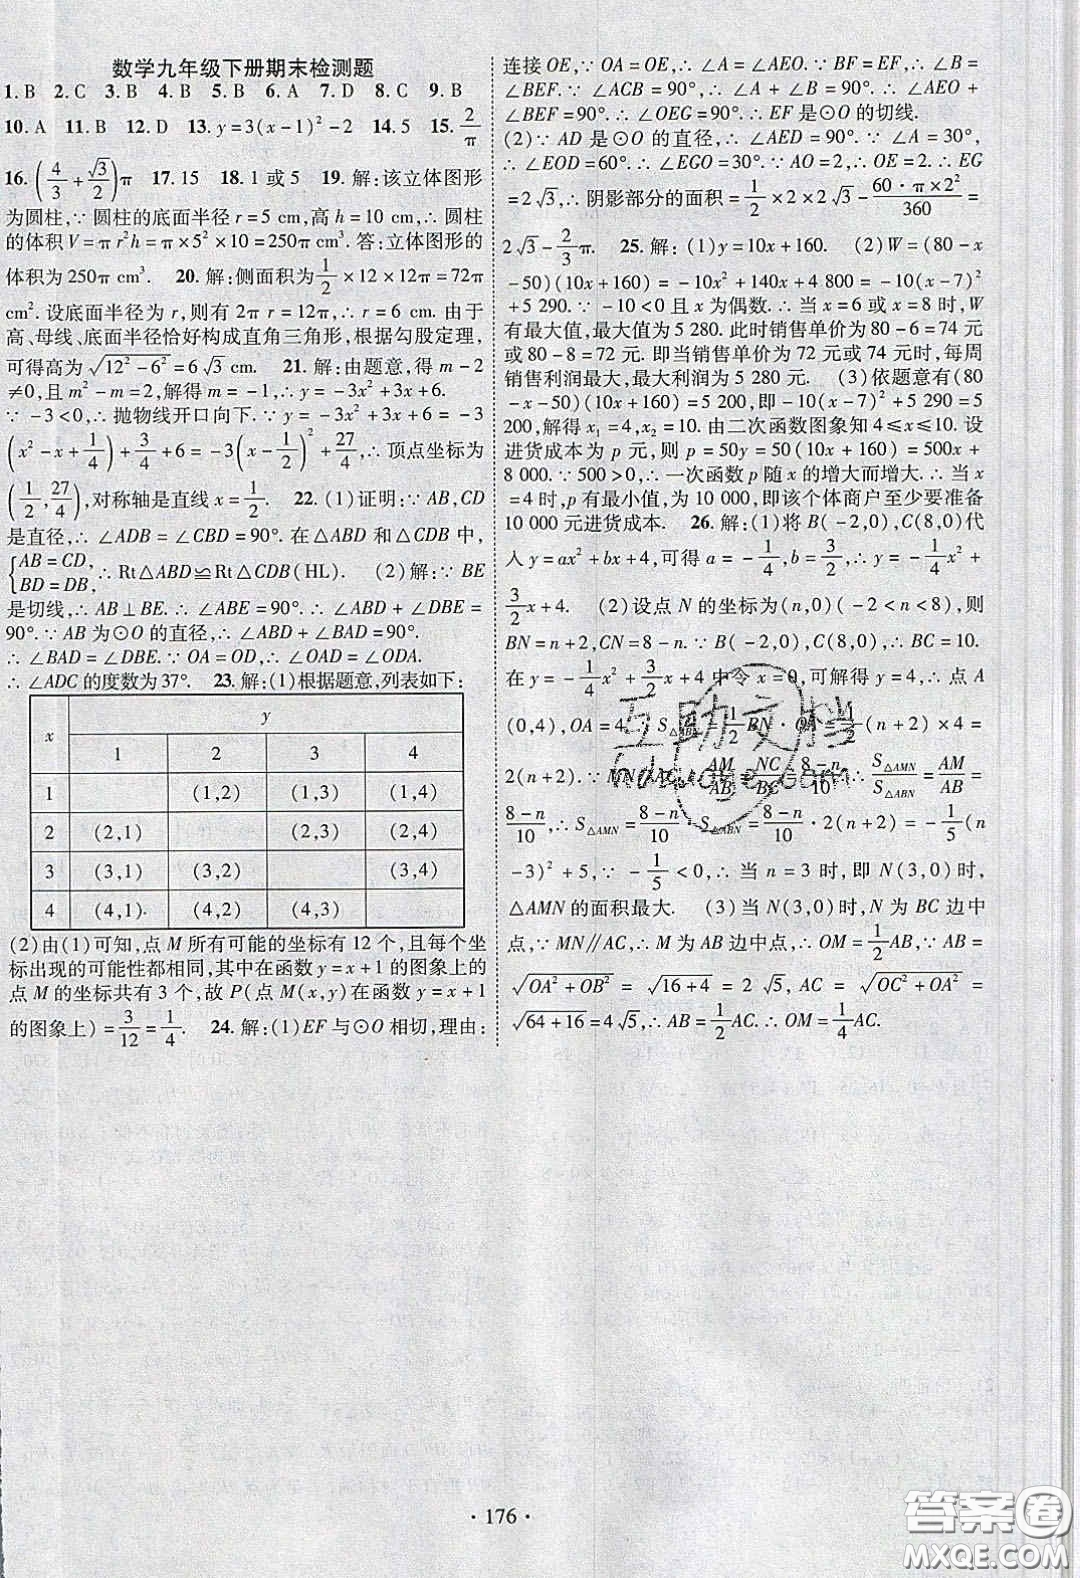 数学九年级下册期末检测题
1. B 2. C 3. B 4. B 5. B 6. A 7. D 8. C 9. B
10. A 11. B 12. D 13. y=3(x-1)²-2 14. 5 15. 2/π
16. (4/3+√3/2)π 17. 15 18. 1或5 19. 解:该立体图形
为圆柱,∵圆柱的底面半径 r=5 cm,高 h=10 cm,∴圆柱
的体积 V=πr²h=π×5²×10=250π cm³. 答:立体图形的
体积为250π cm³. 20. 解:侧面积为1/2×12×12π=72π
cm². 设底面半径为 r,则有 2πr=12π,∴r=6 cm. 由于
高、母线、底面半径恰好构成直角三角形,根据勾股定理,
可得高为√(12²-6²)=6√3 cm. 21. 解:由题意,得 m-2
≠0,且 m²-m=2,解得 m=-1,∴y=-3x²+3x+6.
∵-3<0,∴抛物线开口向下. ∵y=-3x²+3x+6=-3
(x²-x+1/4)+3/4+6=-3(x-1/2)²+27/4,∴顶点坐标为
(1/2,27/4),对称轴是直线 x=1/2. 22. (1)证明:∵AB,CD
是直径,∴∠ADB=∠CBD=90°. 在△ABD 和△CDB 中,
{AB=CD, BD=DB,∴Rt△ABD≌Rt△CDB(HL). (2)解:∵BE
是切线,∴AB⊥BE. ∴∠ABE=90°. ∴∠ABD+∠DBE=
90°. ∵AB 为⊙O 的直径,∴∠ABD+∠BAD=90°.
∴∠BAD=∠DBE. ∵OA=OD,∴∠OAD=∠ODA.
∴∠ADC 的度数为37°. 23. 解:(1)根据题意,列表如下:
x y
1 2 3 4
1 (1,2) (1,3) (1,4)
2 (2,1) (2,3) (2,4)
3 (3,1) (3,2) (3,4)
4 (4,1) (4,2) (4,3)
(2)由(1)可知,点 M 所有可能的坐标有12个,且每个坐
标出现的可能性都相同,其中在函数 y=x+1 的图象上的
点 M 的坐标共有3个,故 P(点 M(x,y)在函数 y=x+1
的图象上)=3/12=1/4. 24. 解:(1)EF 与⊙O 相切,理由:
连接 OE,∵OA=OE,∴∠A=∠AEO. ∵BF=EF,∴∠B=
∠BEF. ∵∠ACB=90°,∴∠A+∠B=90°. ∴∠AEO+
∠BEF=90°,∴∠OEG=90°. ∴EF 是⊙O 的切线.
(2)∵AD 是⊙O 的直径,∴∠AED=90°. ∵∠A=30°,
∴∠EOD=60°. ∴∠EGO=30°. ∵AO=2,∴OE=2. ∴EG
=2√3,∴阴影部分的面积=1/2×2×2√3-60·π×2²/360=
2√3-2/3π. 25. 解:(1)y=10x+160. (2)W=(80-x
-50)(10x+160)=-10x²+140x+4 800=-10(x-7)²
+5 290. ∵-10<0 且 x 为偶数. ∴当 x=6 或 x=8 时,W
有最大值,最大值为 5 280. 此时销售单价为 80-6=74 元
或 80-8=72 元. 即当销售单价为 72 元或 74 元时,每周
销售利润最大,最大利润为 5 280 元. (3)依题意有(80
-x-50)(10x+160)=5 200,即-10(x-7)²+5 290=5
200,解得 x₁=4,x₂=10. 由二次函数图象知 4≤x≤10. 设
进货成本为 p 元,则 p=50y=50(10x+160)=500x+
8 000. ∵500>0,∴一次函数 p 随 x 的增大而增大. ∴当 x
=4 时,p 有最小值,为 10 000,即该个体商户至少要准备
10 000 元进货成本. 26. 解:(1)将 B(-2,0),C(8,0)代
入 y=ax²+bx+4,可得 a=-1/4,b=3/2,∴y=-1/4x²+
3/2x+4. (2)设点 N 的坐标为(n,0)(-2<n<8),则
BN=n+2,CN=8-n. ∵B(-2,0),C(8,0),∴BC=10.
在 y=-1/4x²+3/2x+4 中令 x=0,可解得 y=4,∴点 A
(0,4),OA=4,∴S△ABN=1/2BN·OA=1/2(n+2)×4=
2(n+2). ∵MN∥AC,∴AM/AB=NC/BC=8-n/10. ∴S△AMN/S△ABN=AM/AB=
8-n/10,∴S△AMN=8-n/10·S△ABN=8-n/10·2(n+2)=-1/5(n
-3)²+5,∵-1/5<0,∴当 n=3 时,即 N(3,0)时,
△AMN 的面积最大. (3)当 N(3,0)时,N 为 BC 边中
点,∵MN∥AC,∴M 为 AB 边中点,∴OM=1/2AB,∵AB=
√(OA²+OB²)=√(16+4)=2√5,AC=√(OC²+OA²)=
√(64+16)=4√5,∴AB=1/2AC. ∴OM=1/4AC.
互助文档
hdwdche.com
·176·
答案圈
MXQE.COM